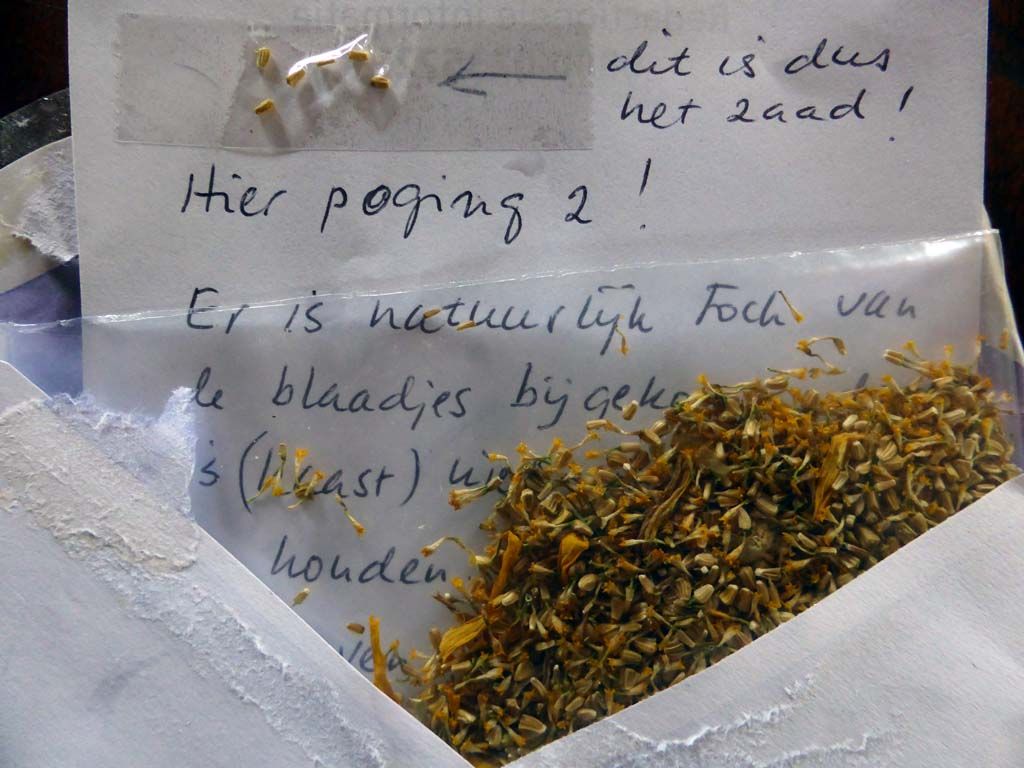 dit is dus
het zaad!
Hier poging 2!
Er is natuurlijk Toch van
de blaadjes bijgeko
is (haast)
houden.